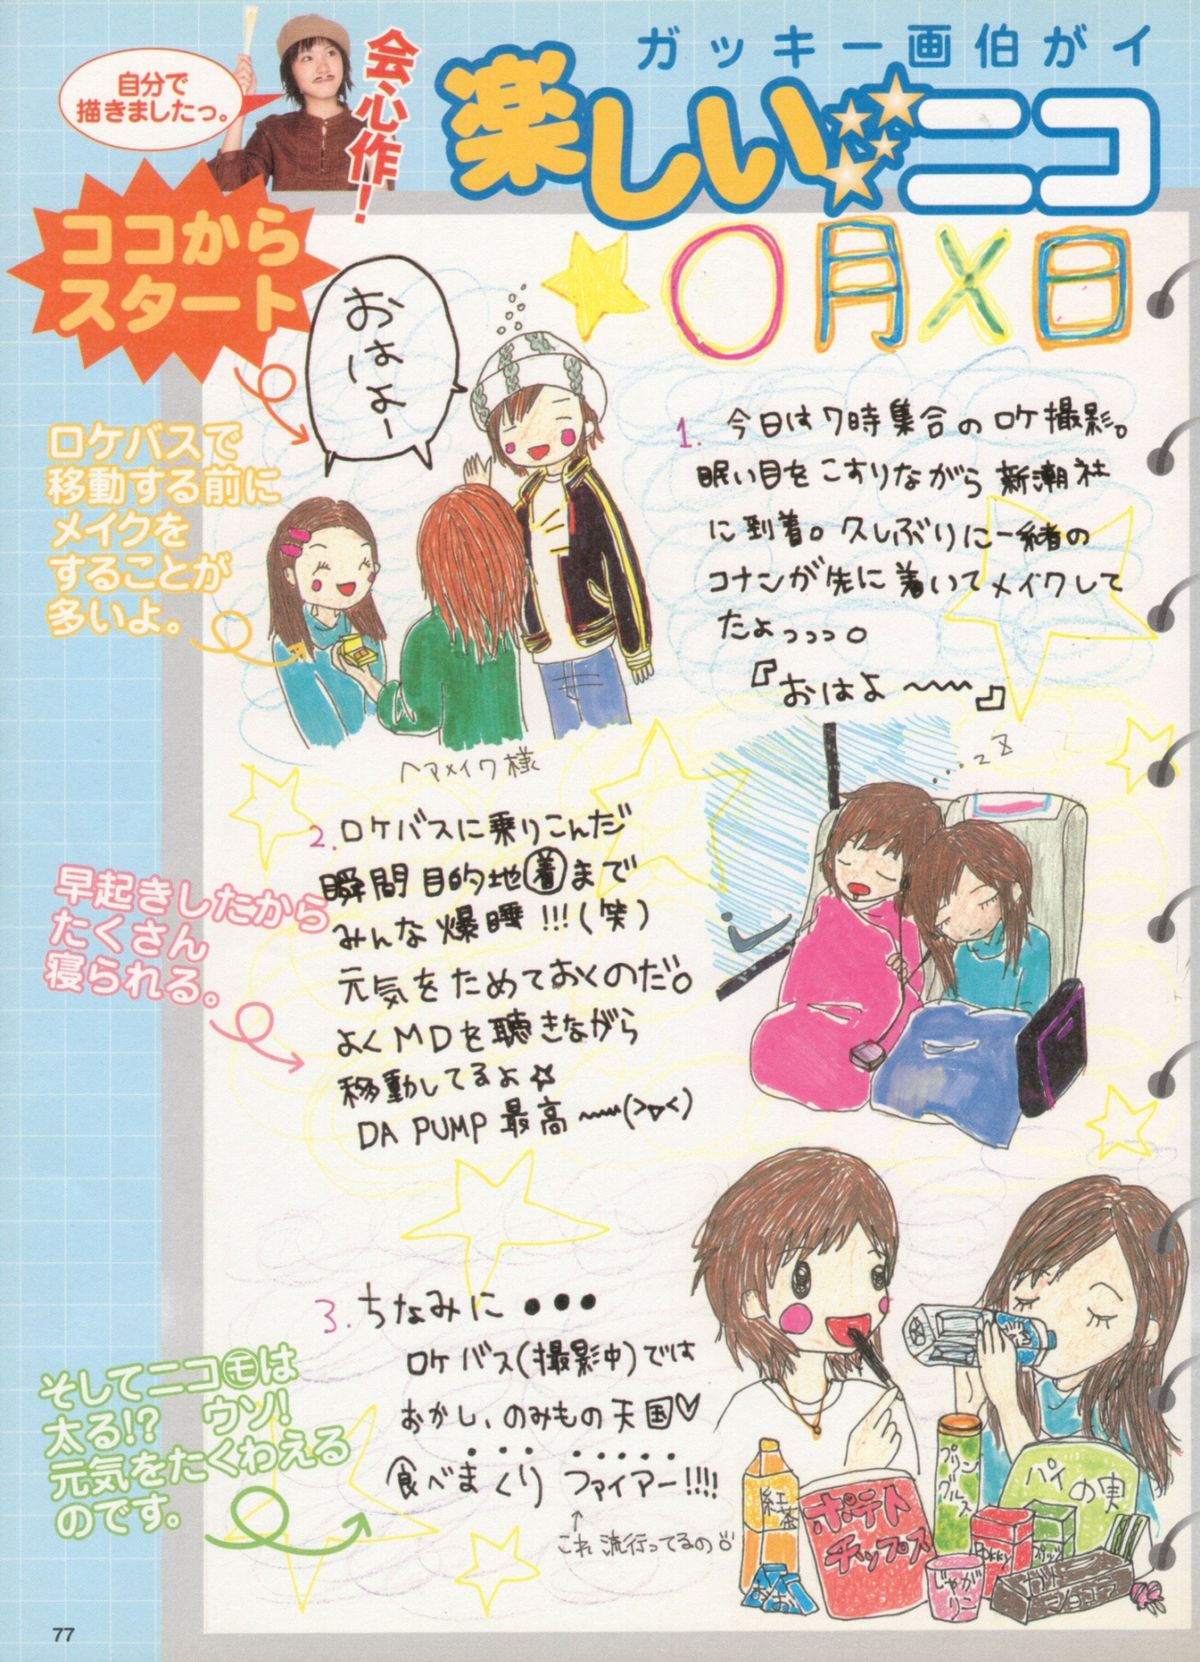 ガッキー画伯がイ
楽しいニコ
会心作!
自分で
描きましたっ。
ココから
スタート
〇月X日
おはよー
ロケバスで
移動する前に
メイクを
することが
多いよ。
1. 今日は7時集合のロケ撮影。
眠い目をこすりながら新潮社
に到着。久しぶりに一緒の
コナンが先に着いてメイクして
たよっっっ。
『おはよ〜〜〜』
ヘアメイク様
...zz
2. ロケバスに乗りこんだ
瞬間目的地着まで
みんな爆睡!!!(笑)
元気をためておくのだ。
よくMDを聴きながら
移動してるよ☆
DA PUMP 最高〜〜(>▽<)
早起きしたから
たくさん
寝られる。
3. ちなみに・・・
ロケバス(撮影中)では
おかし、のみもの天国♡
食べまくりファイアー!!!!
↑
これ流行ってるの
そしてニコモは
太る!? ウソ!
元気をたくわえる
のです。
紅茶
ポテト
チップス
プリングルス
パイの実
Pokky
じゃがリコ
ガトーショコラ
77